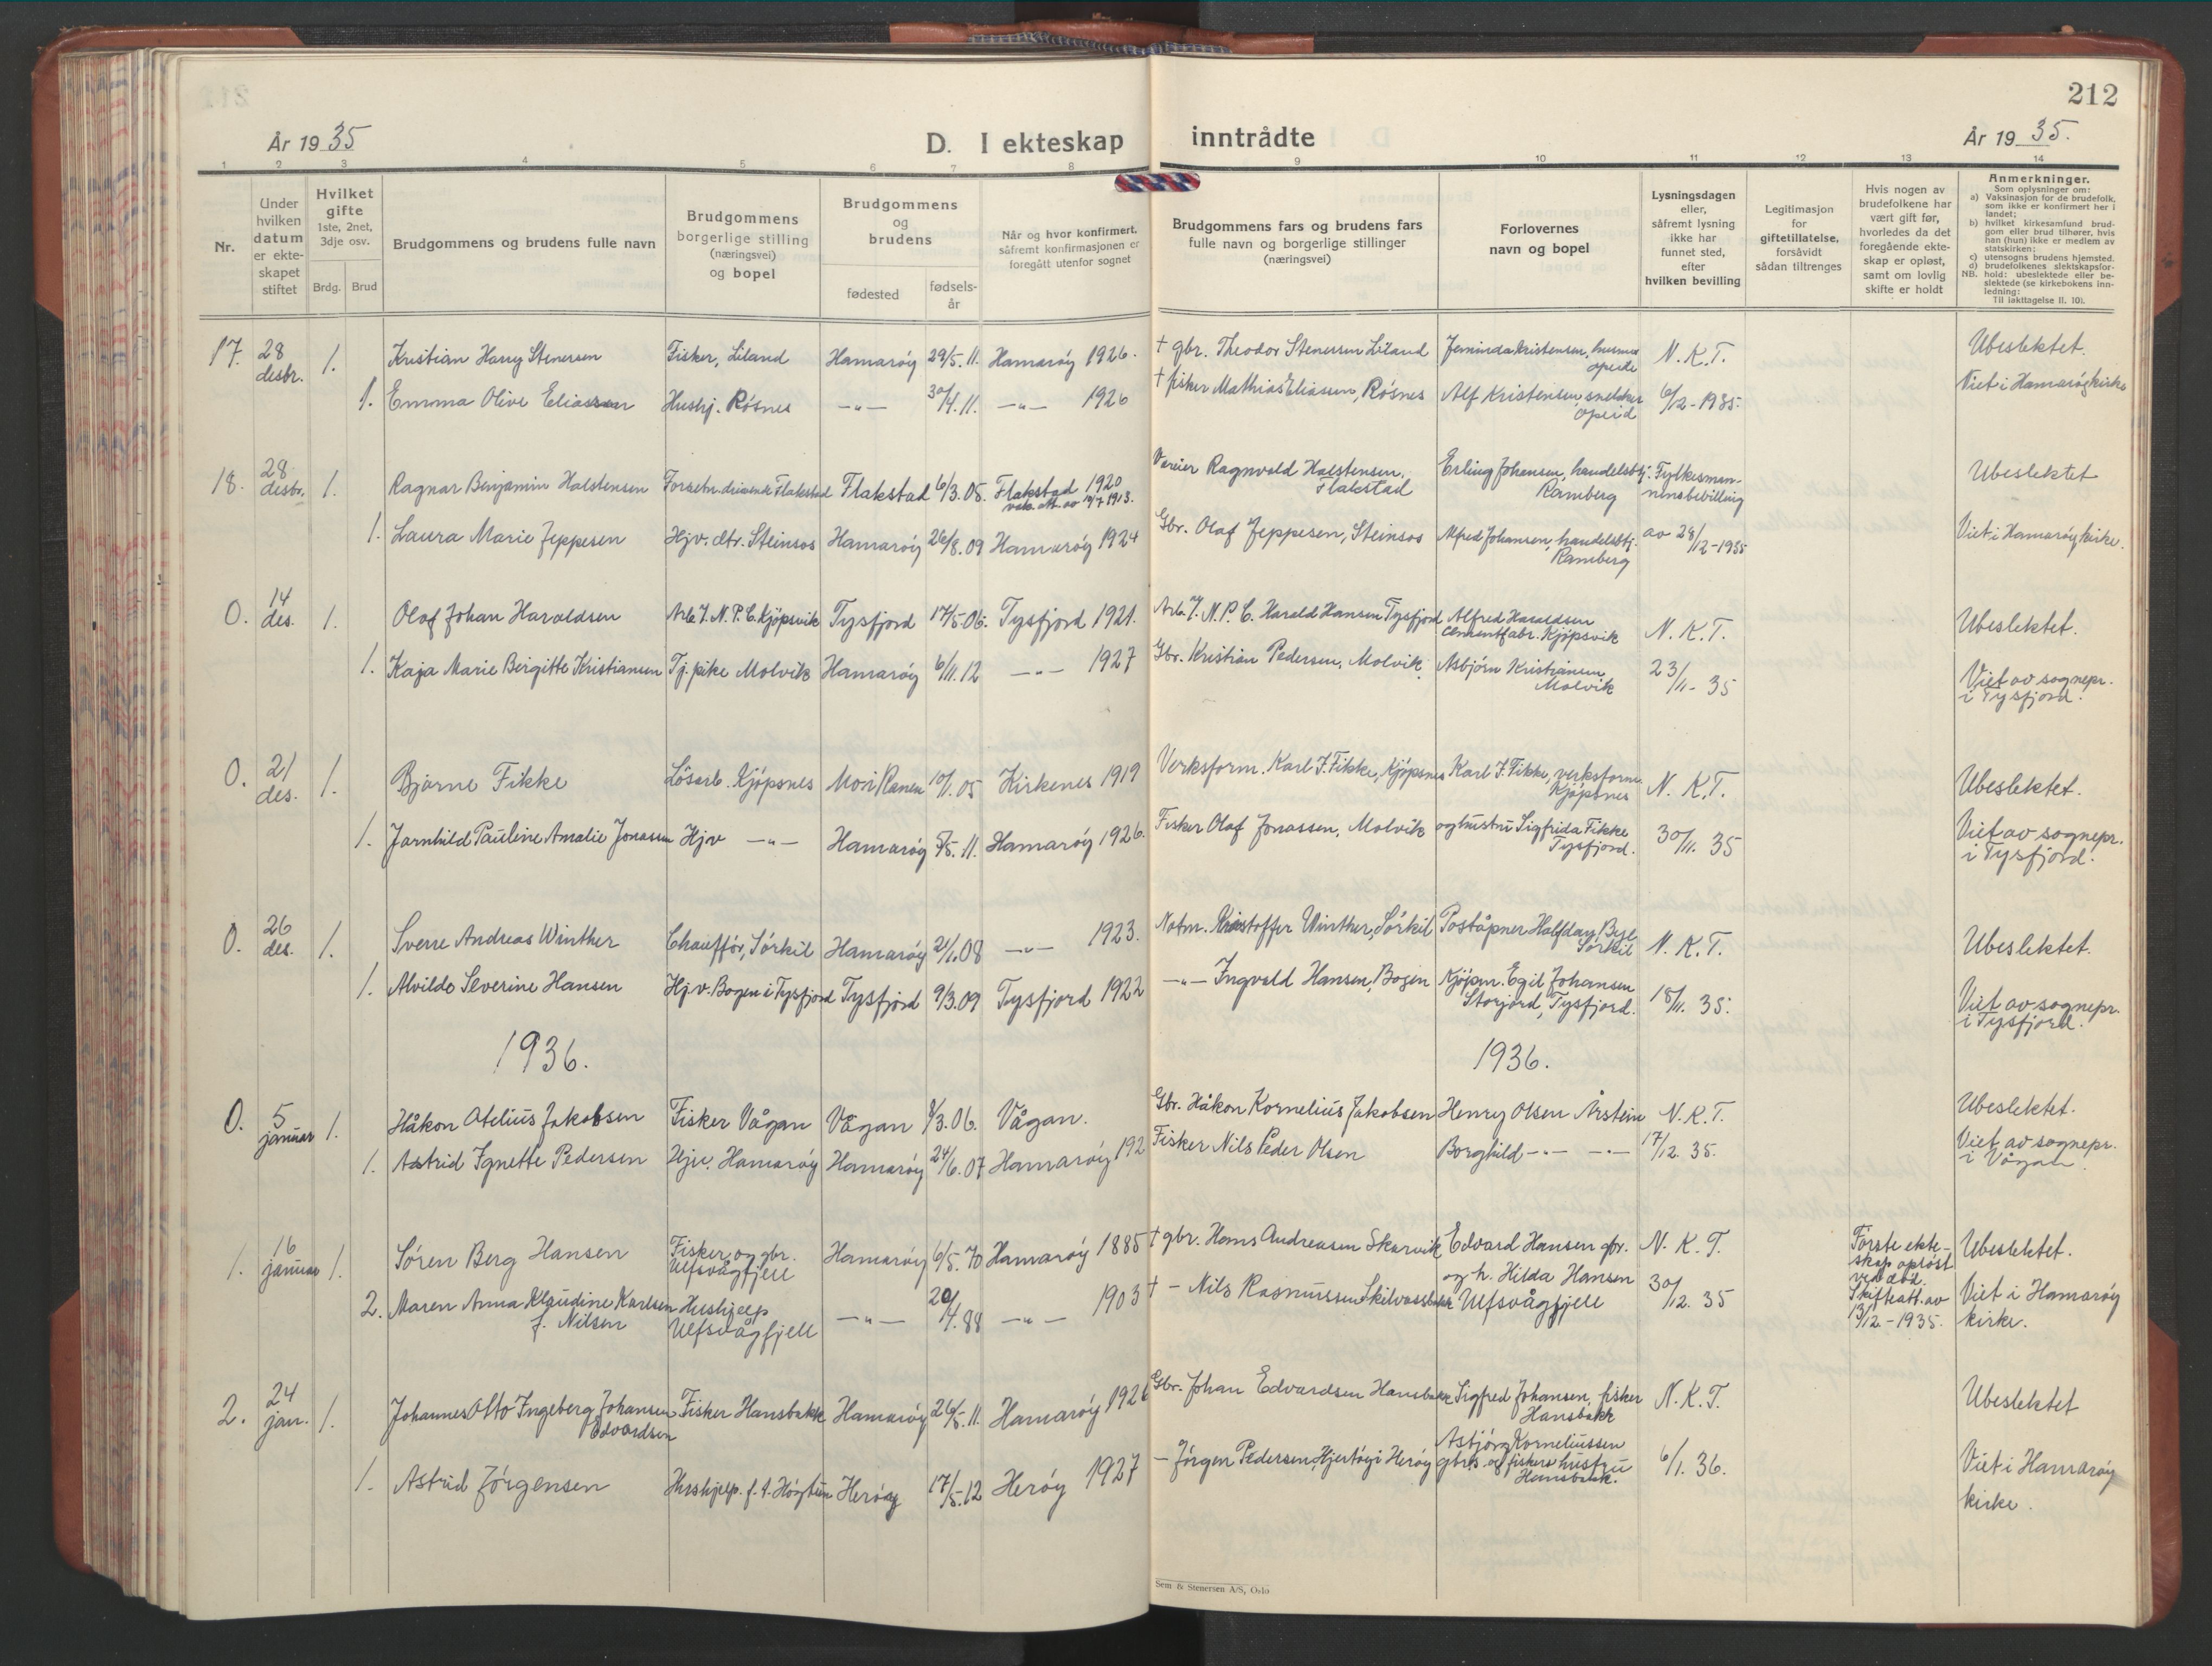 212
År 1935
D. I ekteskap inntrådte
År 1935.
1 2 3 4 5 6 7 8 9 10 11 12 13 14
Nr.
Under
hvilken
datum
er ekte-
skapet
stiftet
Hvilket
gifte
1ste, 2net,
3dje osv.
Brdg. Brud
Brudgommens og brudens fulle navn
Brudgommens
borgerlige stilling
(næringsvei)
og bopel
Brudgommens
og
brudens
fødested
fødsels-
år
Når og hvor konfirmert.
såfremt konfirmasjonen er
foregått utenfor sognet
Brudgommens fars og brudens fars
fulle navn og borgerlige stillinger
(næringsvei)
Forlovernes
navn og bopel
Lysningsdagen
eller,
såfremt lysning
ikke har
funnet sted,
efter
hvilken bevilling
Legitimasjon
for
giftetillatelse,
forsåvidt
sådan tiltrenges
Hvis nogen av
brudefolkene har
vært gift før,
hvorledes da det
foregående ekte-
skap er opløst,
samt om lovlig
skifte er holdt
Anmerkninger.
Som oplysninger om:
a) Vaksinasjon for de brudefolk,
som ikke er konfirmert her i
landet;
b) hvilket kirkesamfund brud-
gom eller brud tilhører, hvis
han (hun) ikke er medlem av
statskirken;
c) utensogns brudens hjemsted.
d) brudefolkenes slektskapsfor-
NB. hold: ubeslektede eller be-
slektede (se kirkebokens inn-
ledning:
Til iakttagelse II. 10).
17. 28 desbr. 1. Kristian Harry Stenersen Fisker, Liland Hamarøy 29/5.11. Hamarøy 1926. † gbr. Theodor Stenersen Liland Jeminda Kristensen, husmor Opeid N.K.T. Ubeslektet.
1. Emma Olive Eliassen Hushj. Røsnes —"— 30/4.11. —"— 1926 † fisker Mathias Eliassen, Røsnes Alf Kristensen, snekker Opeid 6/12-1935. Viet i Hamarøy kirke
18. 28 desbr. 1. Ragnar Benjamin Halstensen Flakstad Flakstad 6/3.05. Flakstad 1920 Ragnvald Halstensen, Flakstad Erling Johansen, handelsbtj. Ramberg Fylkesmen- Ubeslektet
vak. att. av 10/7 1913.
1. Laura Marie Jeppesen Hjv. dtr. Steinsos Hamarøy 26/8.09 Hamarøy 1924 Gbr. Olaf Jeppesen, Steinsos Alfred Johansen, handelsbtj. Ramberg nensbevilling av 28/12-1935 Viet i Hamarøy kirke.
0. 14 des. 1. Olaf Johan Haraldsen Arb. v/ N.P.C. Kjøpsvik Tysfjord 17/5.06. Tysfjord 1921. Arb. v/ N.P.C. Harald Hansen Tysfjord Alfred Haraldsen cementfabr. Kjøpsvik N.K.T. Ubeslektet.
1. Kaja Marie Birgitte Kristiansen Tj. pike Molvik Hamarøy 6/11.12 —"— 1927 Gbr. Kristian Pedersen, Molvik. Asbjørn Kristiansen Molvik 23/11-35 Viet av sognepr. i Tysfjord.
0. 21 des. 1. Bjarne Fikke Løsarb. Kjøpsnes Mo i Ranen 10/1.05 Kirkenes 1919 Verksform. Karl J. Fikke, Kjøpsnes Karl J. Fikke, verksform. Kjøpsnes N.K.T. Ubeslektet.
1. Jarnhild Pauline Amalie Jonassen Hjv —"— Hamarøy 5/5.11. Hamarøy 1926. Fisker Olaf Jonassen, Molvik og hustru Sigfrida Fikke Tysfjord. 30/11.35 Viet av sognepr. i Tysfjord.
0. 26 des. 1. Sverre Andreas Winther Chauffør, Sørkil Hamarøy 21/1.08 —"— 1923. Notm. Kristoffer Winther, Sørkil Poståpner Halfdan Bye Sørkil N.K.T. Ubeslektet.
1. Alvilde Severine Hansen Hjv. Bogen i Tysfjord Tysfjord 9/3.09 Tysfjord 1922 —"— Ingvald Hansen, Bogen Kjøpm. Egil Johansen Storjord, Tysfjord. 18/11.35. Viet av sognepr. i Tysfjord.
1936. 1936.
0. 5 januar 1. Håkon Atelius Jakobsen Fisker Vågan Vågan 8/3.06. Vågan. Gbr. Håkon Kornelius Jakobsen Henry Olsen Årstein N.K.T. Ubeslektet.
1. Astrid Ignette Pedersen Hjv. Hamarøy Hamarøy 24/6.07 Hamarøy 192 Fisker Nils Peder Olsen Borghild —"— —"— 17/12.35. Viet av sognepr. i Vågan.
1. 16 januar 1. Søren Berg Hansen Fisker og gbr. Ulfsvågfjell Hamarøy 6/5.70 Hamarøy 1885 † gbr. Hans Andreasen Skarvik Edvard Hansen gbr. N.K.T. Første ekte- skap opløst ved død. Ubeslektet.
2. Maren Anna Klaudine Karlsen f. Nilsen Hushjelp Ulfsvågfjell —"— 20/4.88 —"— 1903 † — Nils Rasmussen Skilvassbakk og h. Hilda Hansen Ulfsvågfjell 30/12.35 Skifteatt. av 13/12-1935. Viet i Hamarøy kirke.
2. 24 jan. 1. Johannes Otto Ingeberg Johansen Edvardsen Fisker Hansbakk Hamarøy 26/5.11. Hamarøy 1926 Gbr. Johan Edvardsen Hansbakk Sigfred Johansen, fisker Hansbakk N.K.T. Ubeslektet
1. Astrid Jørgensen Hushjelp. Herøy 17/5.12 Herøy 1927 — Jørgen Pedersen, Hjertøy i Herøy Asbjørg Korneliussen gbrs. og fiskers hustru Hansbakk. 6/1.36. Viet i Hamarøy kirke.
Sem & Stenersen A/S, Oslo